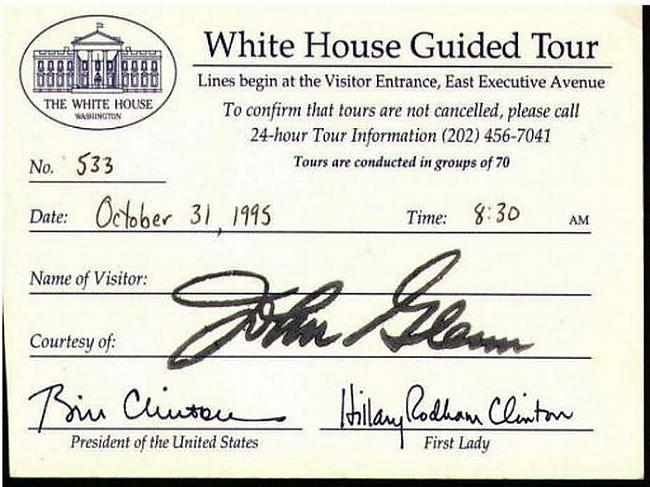 White House Guided Tour
THE WHITE HOUSE
WASHINGTON
Lines begin at the Visitor Entrance, East Executive Avenue
To confirm that tours are not cancelled, please call
24-hour Tour Information (202) 456-7041
Tours are conducted in groups of 70
No. 533
Date: October 31, 1995 Time: 8:30 AM
Name of Visitor:
John Glenn
Courtesy of:
Bill Clinton Hillary Rodham Clinton
President of the United States First Lady